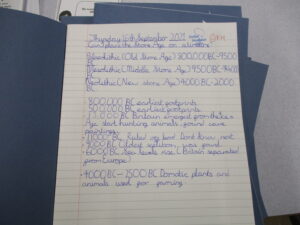 Thursday 16th September 2021
Can I place the Stone Age on a timeline?
(Old Stone Age) 800,000BC-9500
Mesolithic (Middle Stone Age) 9500BC-4000
Neolithic (New Stone Age) 4000BC-2000
BC
800,000 BC earliest footprints
BC earliest footprints
BC Britain emerged from the ice
Age start hunting animals found cave
paintings
BC
9000 BC Oldest skeleton was found
6000 BC Sea levels rise (Britain separated
from Europe)
4000 BC - 2500 BC Domestic plants and
animals used for farming